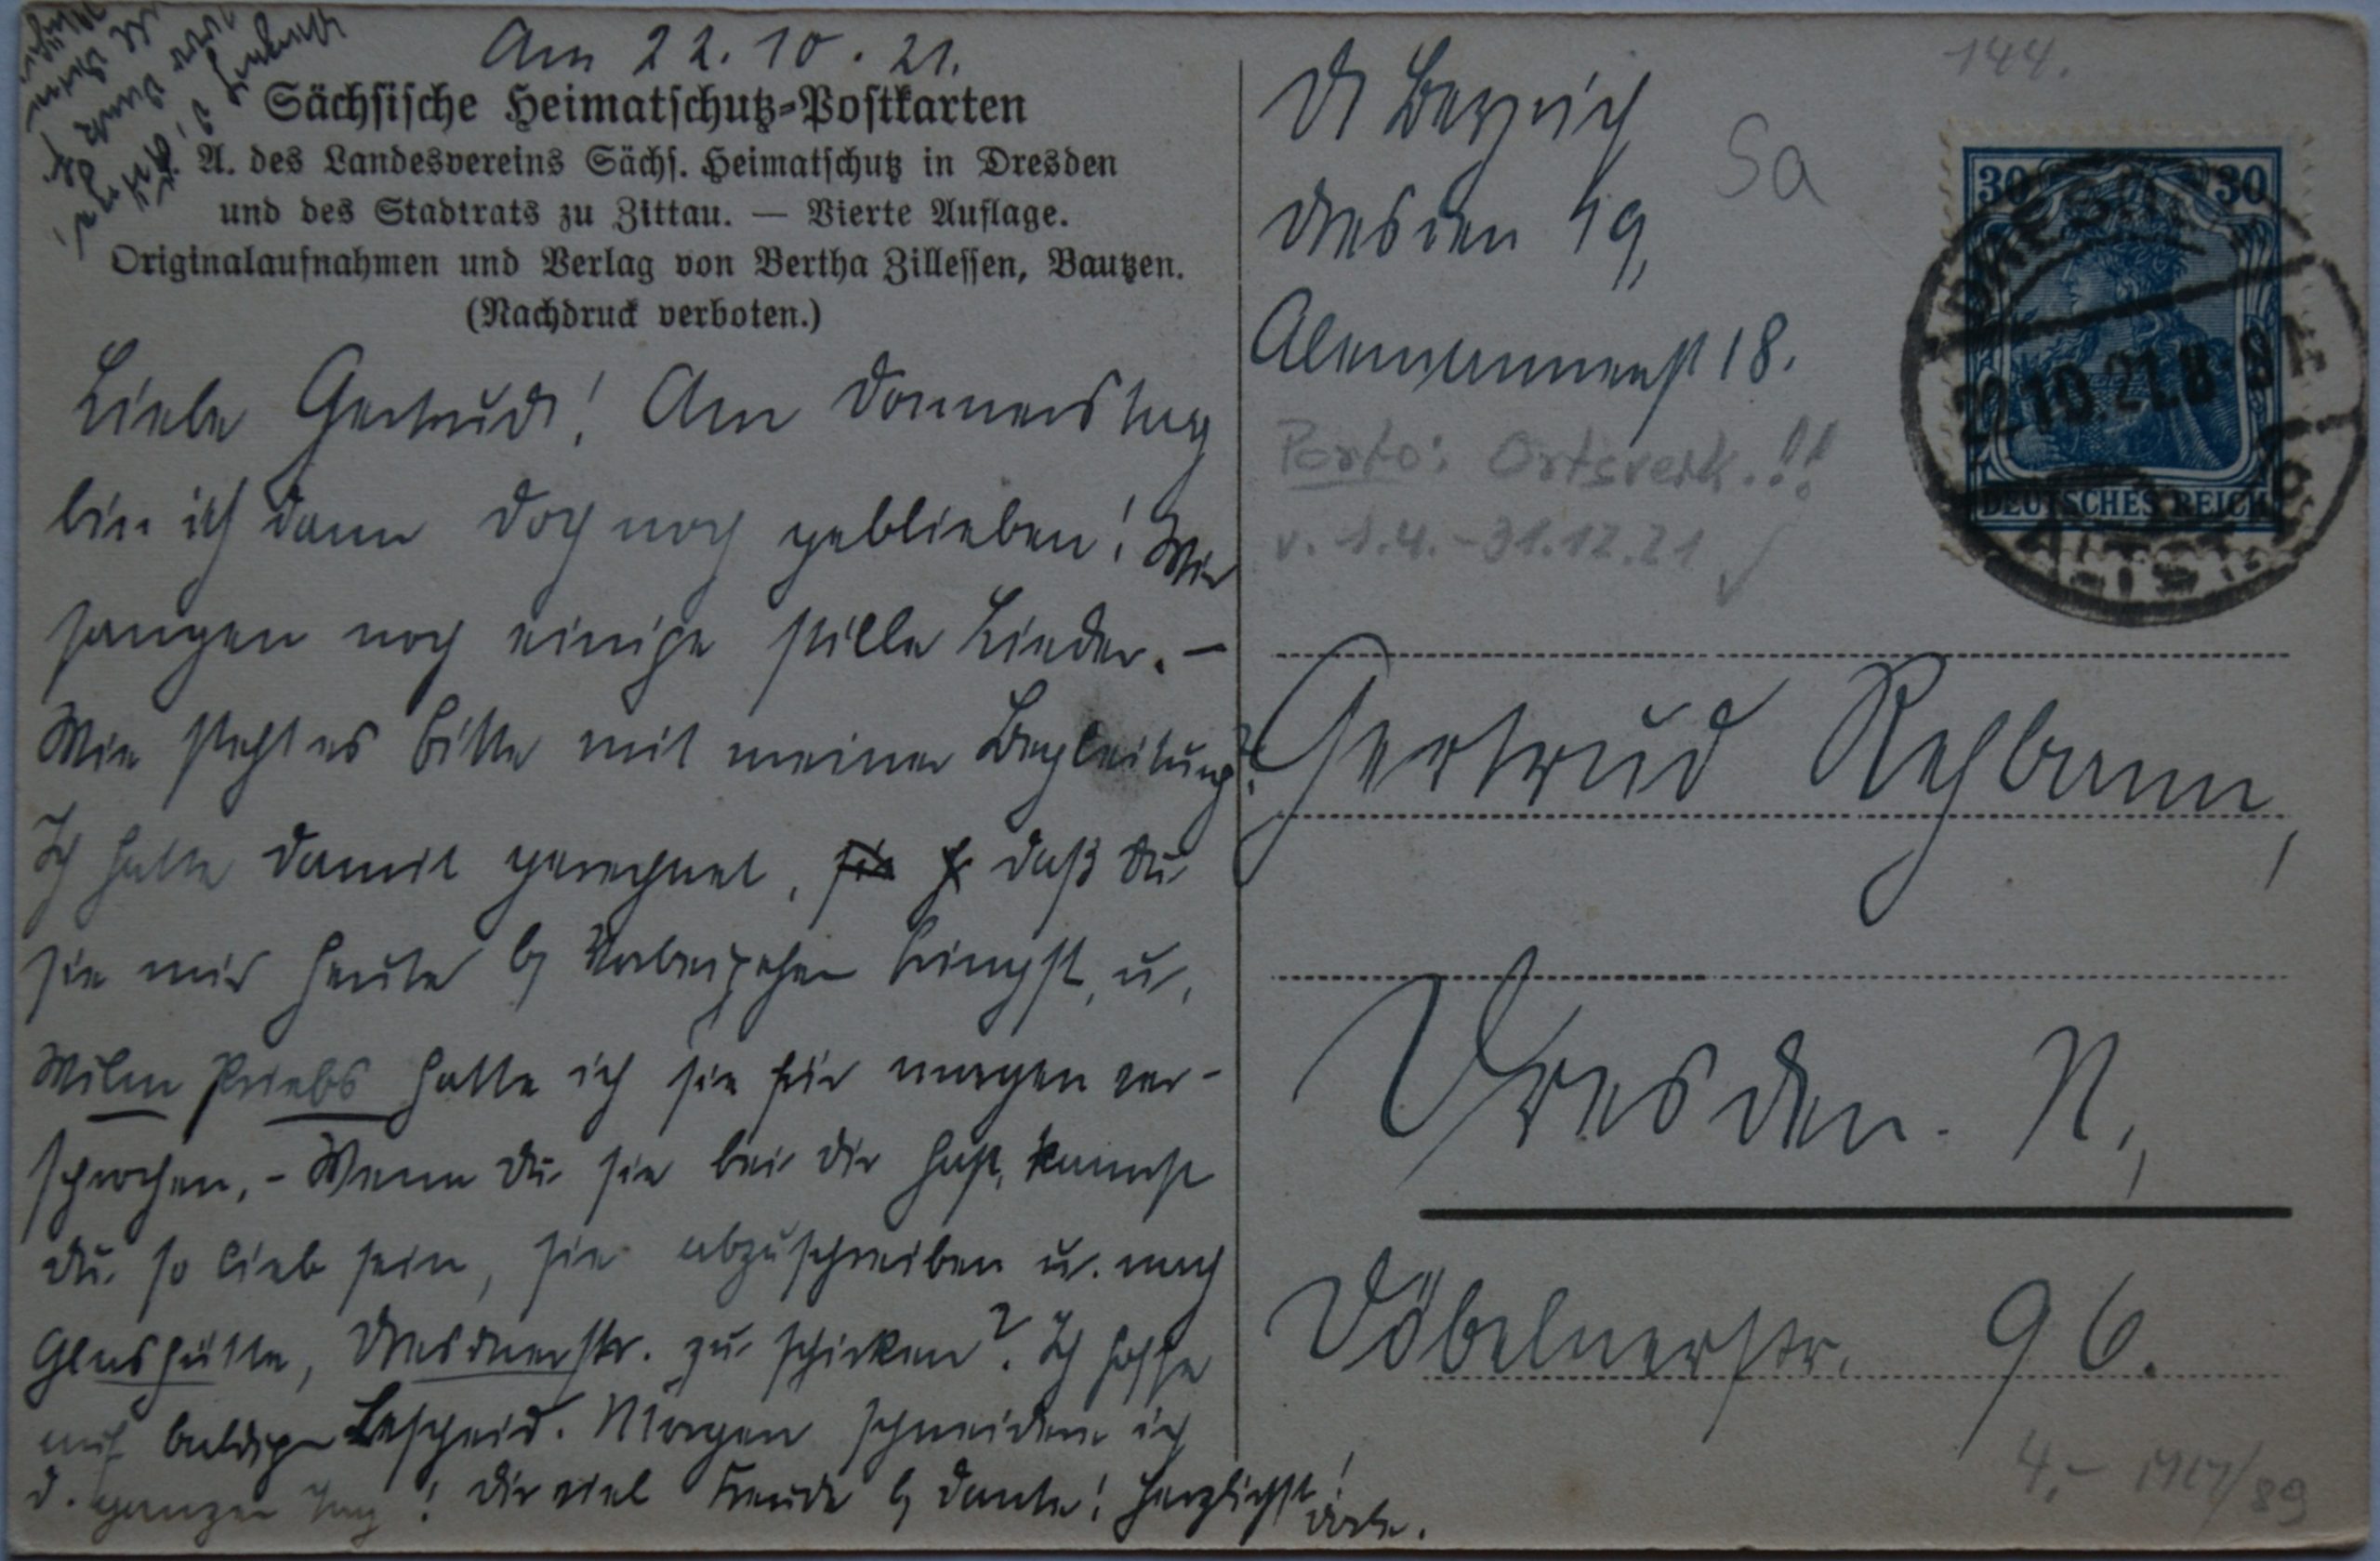 Am 22.10.21.
Sächsische Heimatschutz-Postkarten
A. des Landesvereins Sächs. Heimatschutz in Dresden
und des Stadtrats zu Zittau. — Vierte Auflage.
Originalaufnahmen und Verlag von Bertha Zillessen, Bautzen.
(Nachdruck verboten.)
Liebe Gertrud! Am Donnerstag
bin ich dann doch noch geblieben! Wir
sangen noch einige stille Lieder. –
Wie steht es bitte mit meiner Begleitung?
Ich hatte damit gerechnet, daß du
sie mir heute b. Vorbeigehen bringst, u.
hatte ich sie für morgen ver-
sprochen. – Wenn du sie bei dir hast, kannst
du so lieb sein, sie abzuschreiben u. nach
Glashütte, Dresdnerstr. zu schicken? Ich hoffe
auf baldigen Bescheid. Morgen schneidere ich
d. ganzen Tag! Dir viel Freude b. Dante! Herzlichst!
144.
Dresden 19,
Alemannenst 18.
Sa
Porto: Ortsverk.!!
v. 1.4.-31.12.21
30 30
DEUTSCHES REICH
DRESDEN
22.10.21.8-9
ALTST.
Gertrud Rehbann,
Dresden. N.,
Döbelnerstr. 96.
4,-